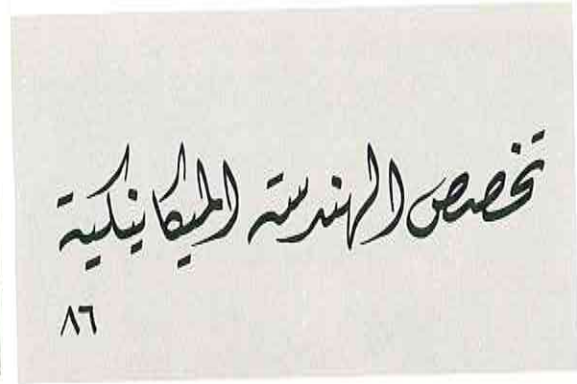 تخصص الهندسة الميكانيكية
٨٦